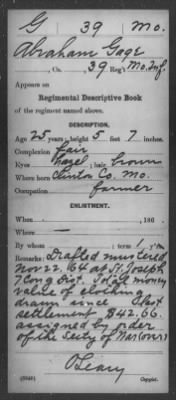 G 39 Mo.
Abraham Gage
, Co. , 39 Reg't Mo. Inf.
Appears on
Regimental Descriptive Book
of the regiment named above.
DESCRIPTION.
Age 25 years; height 5 feet 7 inches.
Complexion fair
Eyes hazel ; hair brown
Where born Clinton Co, Mo.
Occupation farmer
ENLISTMENT.
When - , 186 .
Where -
By whom ; term 1 y'rs
Remarks: Drafted mustered
Nov 22, 64 at St. Joseph
7 Cong Dist. Total money
value of clothing
drawn since last
settlement $42.66.
assigned by order
of the Secty of War (over)
O'Leary
Copyist.